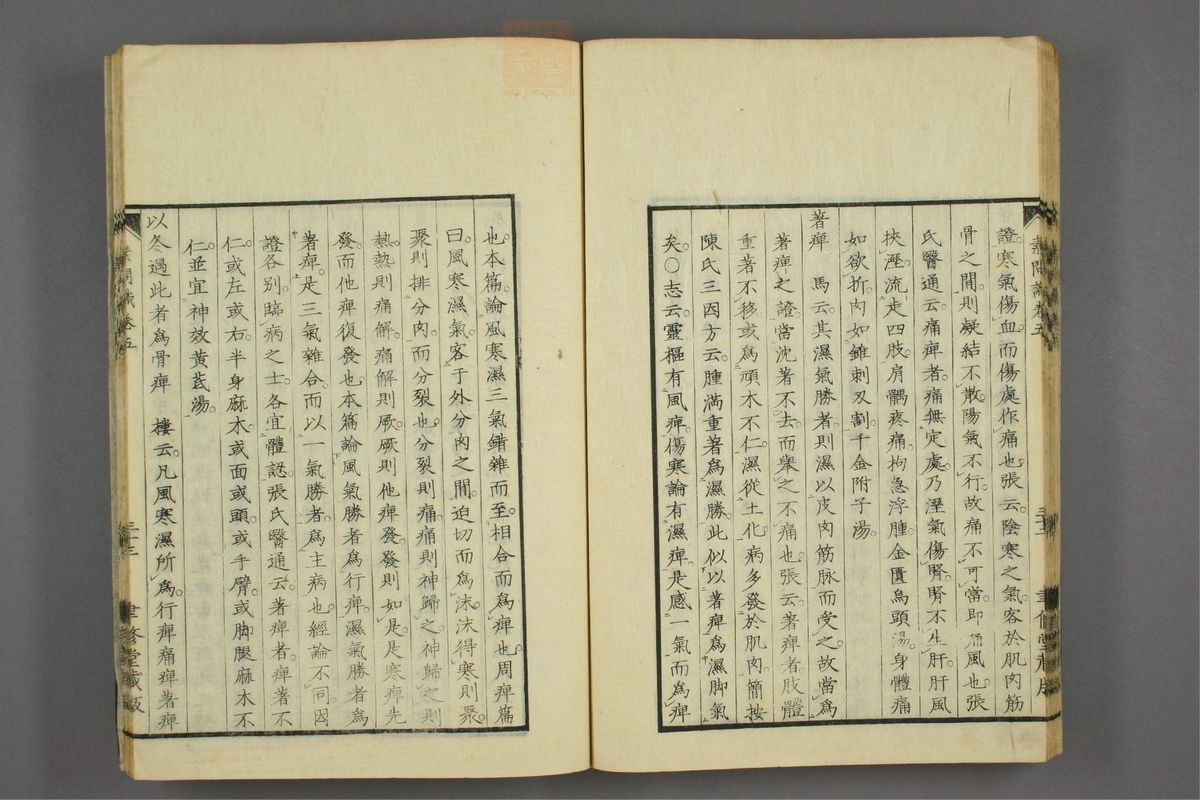 證寒氣傷血而傷處作痛也張云陰寒之氣客於肌肉筋
骨之間則凝結不散陽氣不行故痛不可當即痛風也張
氏醫通云痛痺者痛無定處乃溼氣傷腎腎不生肝肝風
挾溼流走四肢肩髃疼痛拘急浮腫金匱烏頭湯身體痛
如欲折肉如錐刺刄割千金附子湯
著痺　馬云其濕氣勝者則濕以皮肉筋脉而受之故當爲
著痺之證當沈著不去而舉之不痛也張云著痺者肢體
重著不移或爲頑木不仁濕從土化病多發於肌肉簡按
陳氏三因方云腫滿重著爲濕勝此似以著痺爲濕脚氣
矣〇志云靈樞有風痺傷寒論有濕痺是感一氣而爲痺
也本篇論風寒濕三氣錯雜而至相合而爲痺也周痺篇
曰風寒濕氣客于外分肉之間迫切而爲沫沫得寒則聚
聚則排分肉而分裂也分裂則痛痛則神歸之神歸之則
熱熱則痛解痛解則厥厥則他痺發發則如是是寒痺先
發而他痺復發也本篇論風氣勝者爲行痺濕氣勝者爲
著痺是三氣雜合而以一氣勝者爲主病也經論不同因
證各別臨病之士各宜體認張氏醫通云著痺者痺著不
仁或左或右半身麻木或面或頭或手臂或脚腿麻木不
仁並宜神效黄茋湯
以冬遇此者爲骨痺　樓云凡風寒濕所爲行痺痛痺著痺
素問識卷五
三十三
聿修堂藏版